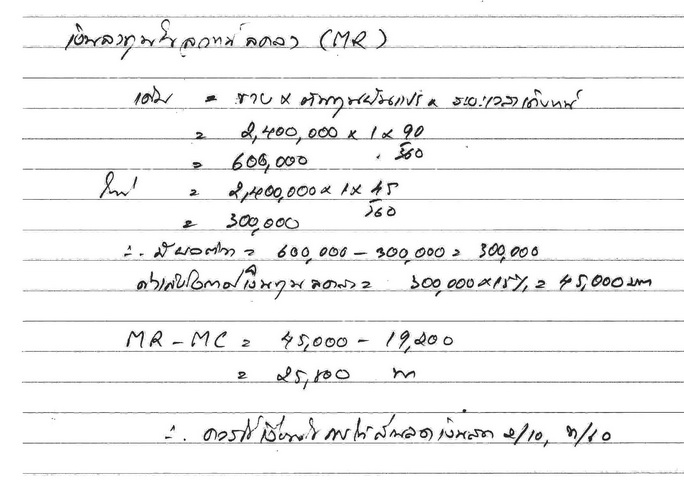 เงินลงทุนในลูกหนี้ลดลง (MR)
เดิม = ขาย x ต้นทุนผันแปร x ระยะเวลาเก็บหนี้
= 2,400,000 x 1 x 90/360
= 600,000
ใหม่ = 2,400,000 x 1 x 45/360
= 300,000
∴ = 600,000 - 300,000 = 300,000
ค่าเสียโอกาสเงินทุนลดลง = 300,000 x 15% = 45,000 บาท
MR - MC = 45,000 - 19,200
= 25,800 บาท
∴ ควรใช้เงื่อนไขการให้ส่วนลดเงินสด 2/10, n/60